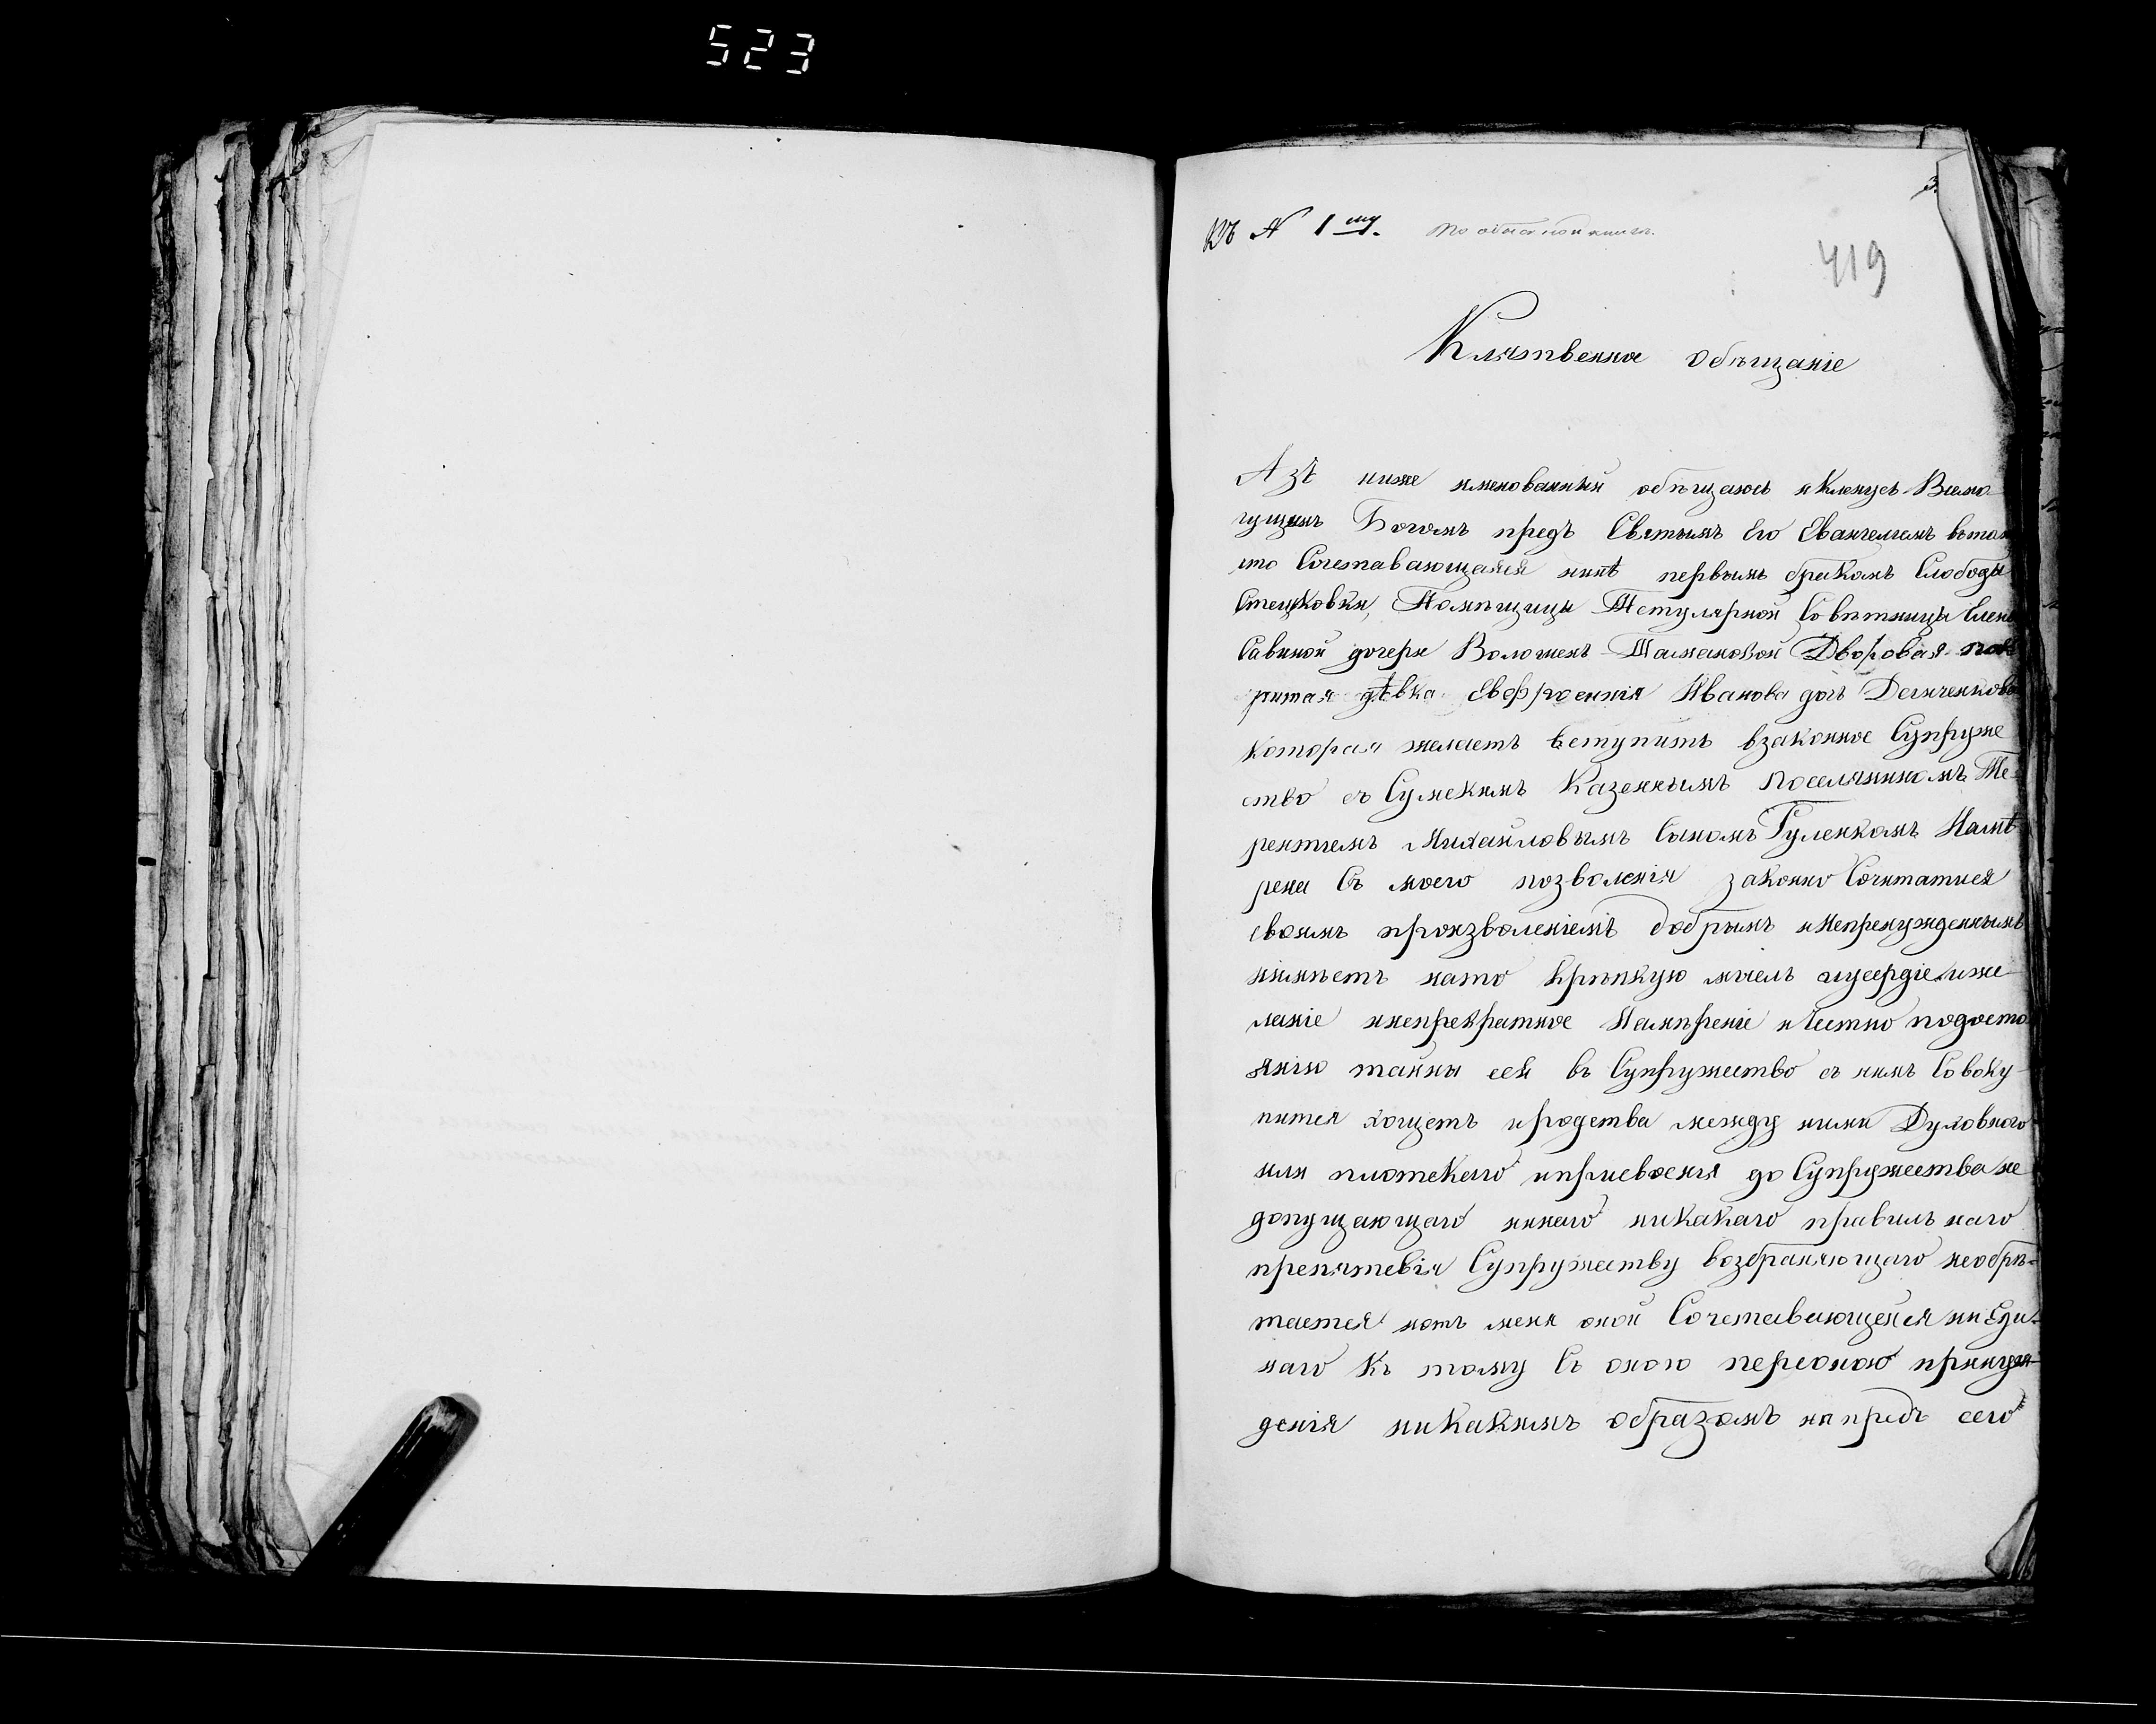 523
3
Къ № 1му. По обыскной книгѣ.
419
Клятвенное обѣщаніе
Азъ ниже именованный обѣщаюсь и кленусъ Всемо
гущимъ Богомъ предъ Святымъ Его Евангелiемъ втом
што Сочетавающаяся нинѣ первымъ бракомъ Слободы
Стецковки, Помѣщицы Тетулярной Совѣтницы Елены
Савиной дочери Воложенъ Дворовая
дѣвка Евфросинія Иванова дочь Дегтченкова
которая желаетъ вступить взаконное Супруже
ство съ Сумскимъ Казеннымъ Поселяниномъ Те
рентiемъ Михайловымъ Сыномъ Гуленкомъ Намѣ
рена Съ моего позволенія законно Сочитатися
своимъ произволеніемъ добрымъ инепренужденнымъ
иимѣетъ нато крѣпкую мысль иусердіе иже
ланіе инепревратное Намѣреніе ичестно подосто
янію тайны сей въ Супружество съ нимъ Совоку
питися хощетъ иродства между ними Духовного
или плотскаго иприсвоенія до Супружества не
допущающаго инаго никакаго правильнаго
препятствія Супружеству возбраняющаго необрѣ=
тается иотъ меня оной Сочетавающейся ни Еди-
наго Къ тому Съ оною персоною принуж-
денія никакимъ образомъ напредъ сего